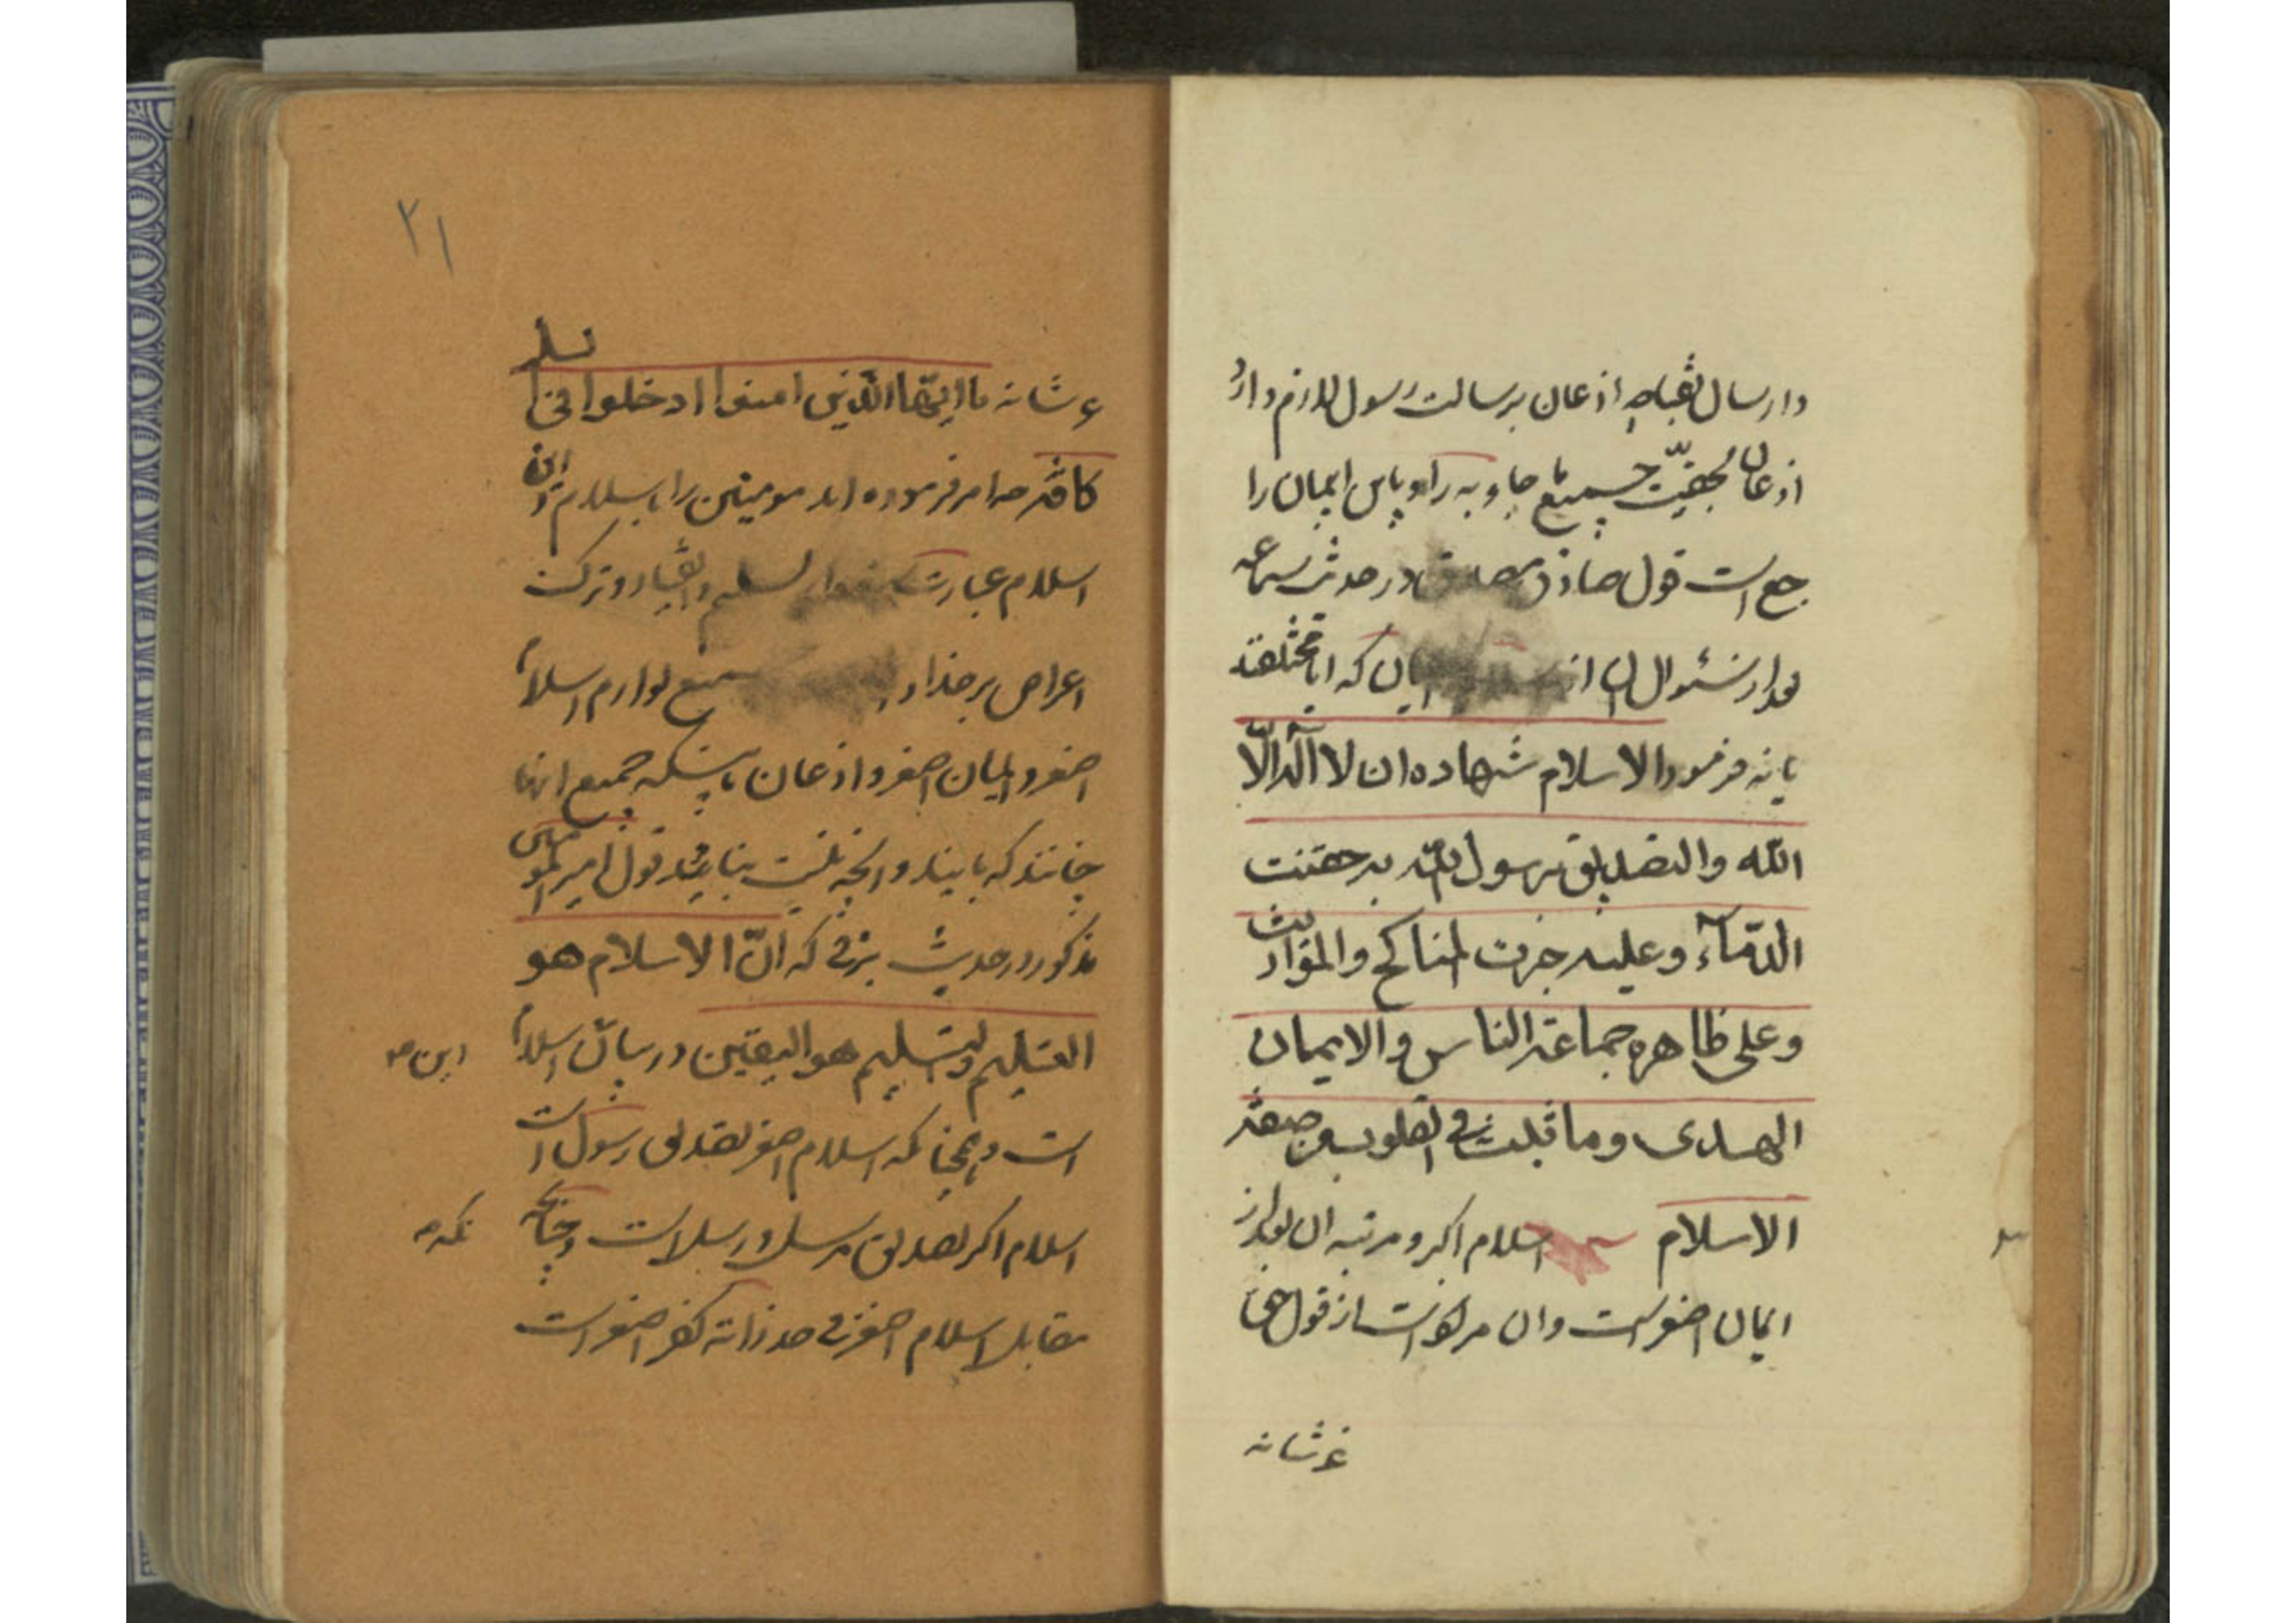 و ارسال انبیاء اذعان برسالت رسول لازم دارد
اذعان بحقیت جمیع ما جاء به را و پس ایمان را
جع است قول صادق مصدق در حدیث سماعه
بعد از سئوال از ایمان که ایا مختلفند
یا نه فرمود الاسلام شهاده ان لا اله الّا
الله والتصدیق برسول الله به حقنت
الدّمآء وعلیه جرت المناکح والمواریث
وعلی ظاهره جماعة الناس والایمان
الهدی وما یثبت فی القلوب من صفة
الاسلام اسلام اکبر و مرتبه آن بعد از
ایمان اصغر است و آن مراد است از قول حق
عز شانه
۲۱
عز شانه یا ایّها الّذین امنوا ادخلوا فی السلم
کافّة که امر فرموده اند مومنین را باسلام و این
اسلام عبارت تسلیم و انقیاد و ترک
اعراض بر خدا جمیع لوازم اسلام
اصغر و ایمان اصغر و اذعان باینکه جمیع انها
چنانند که بایند و انچه نیست نباید قول امیرالمؤمنین
مذکور در حدیث برقی که انّ الاسلام هو
التسلیم والتسلیم هو الیقین در بیان اسلام
این
است و همچنانکه اسلام اصغر تصدیق رسول است
اسلام اکبر تصدیق مرسل و رسالت است و چنانچه
نکه
مقابل اسلام اصغر کفر اصغر است